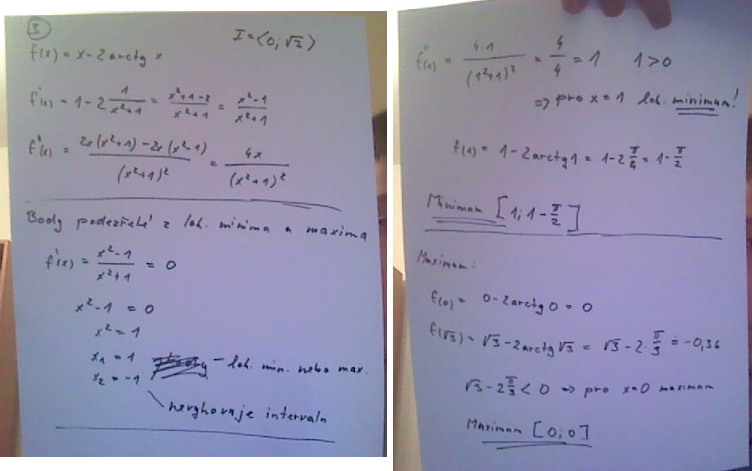 3
I = ⟨0; √3⟩
f(x) = x - 2 arctg x
f'(x) = 1 - 2 1/(x²+1) = (x²+1-2)/(x²+1) = (x²-1)/(x²+1)
f''(x) = (2x(x²+1) - 2x(x²-1))/(x²+1)² = 4x/(x²+1)²
Body podezřelé z lok. minima a maxima
f'(x) = (x²-1)/(x²+1) = 0
x² - 1 = 0
x² = 1
x₁ = 1 - lok. min. nebo max.
x₂ = -1
nevyhovuje intervalu
f''(1) = 4·1/(1²+1)² = 4/4 = 1 1 > 0
=> pro x = 1 lok. minimum!
f(1) = 1 - 2arctg1 = 1 - 2 π/4 = 1 - π/2
Minimum [1; 1 - π/2]
Maximum:
f(0) = 0 - 2arctg 0 = 0
f(√3) = √3 - 2arctg√3 = √3 - 2·π/3 ≐ -0,36
√3 - 2 π/3 < 0 => pro x=0 maximum
Maximum [0; 0]